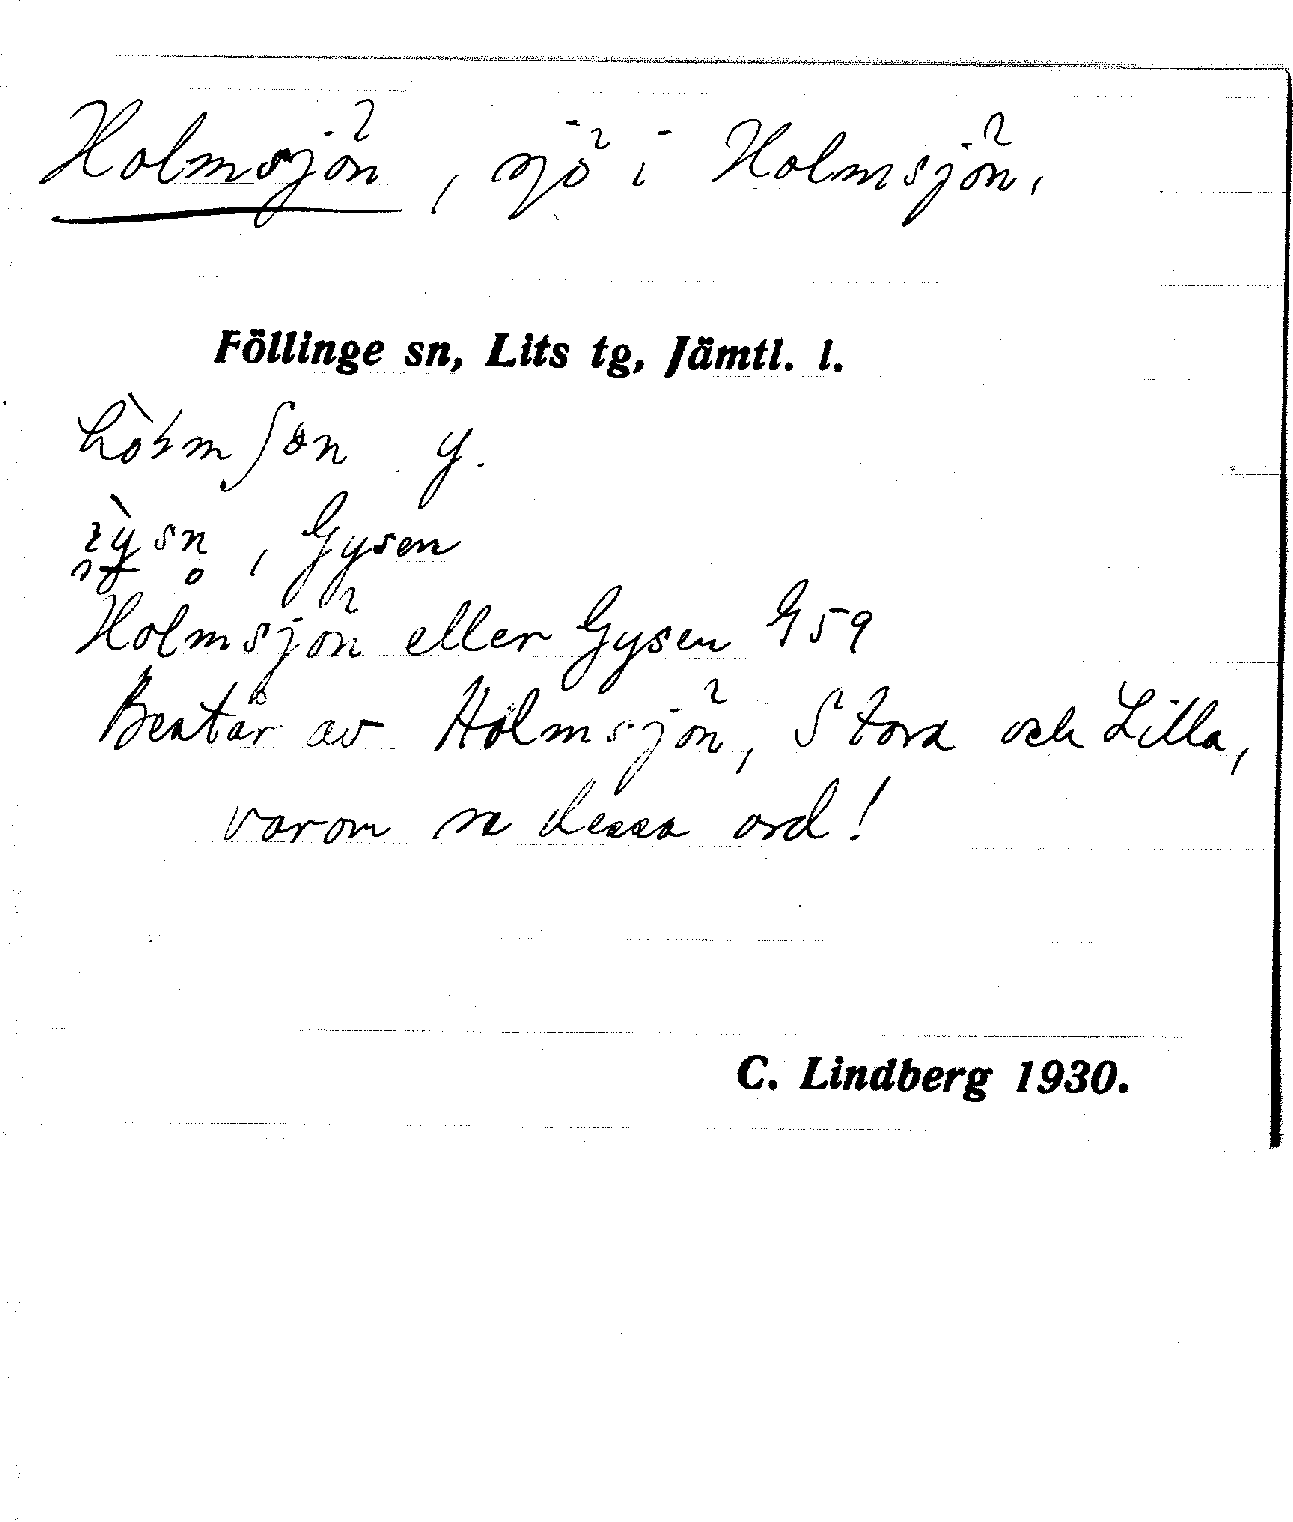 Holmsjön, sjö i Holmsjön,
Föllinge sn, Lits tg, Jämtl. l.
y.
, Gysen
Holmsjön eller Gysen G59
Består av Holmsjön, Stora och Lilla,
varom se dessa ord!
C. Lindberg 1930.